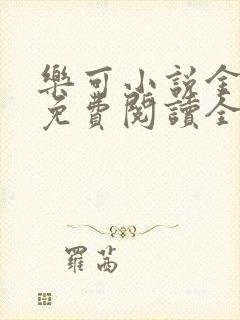 樂可小說全
免費閱讀全
羅茜